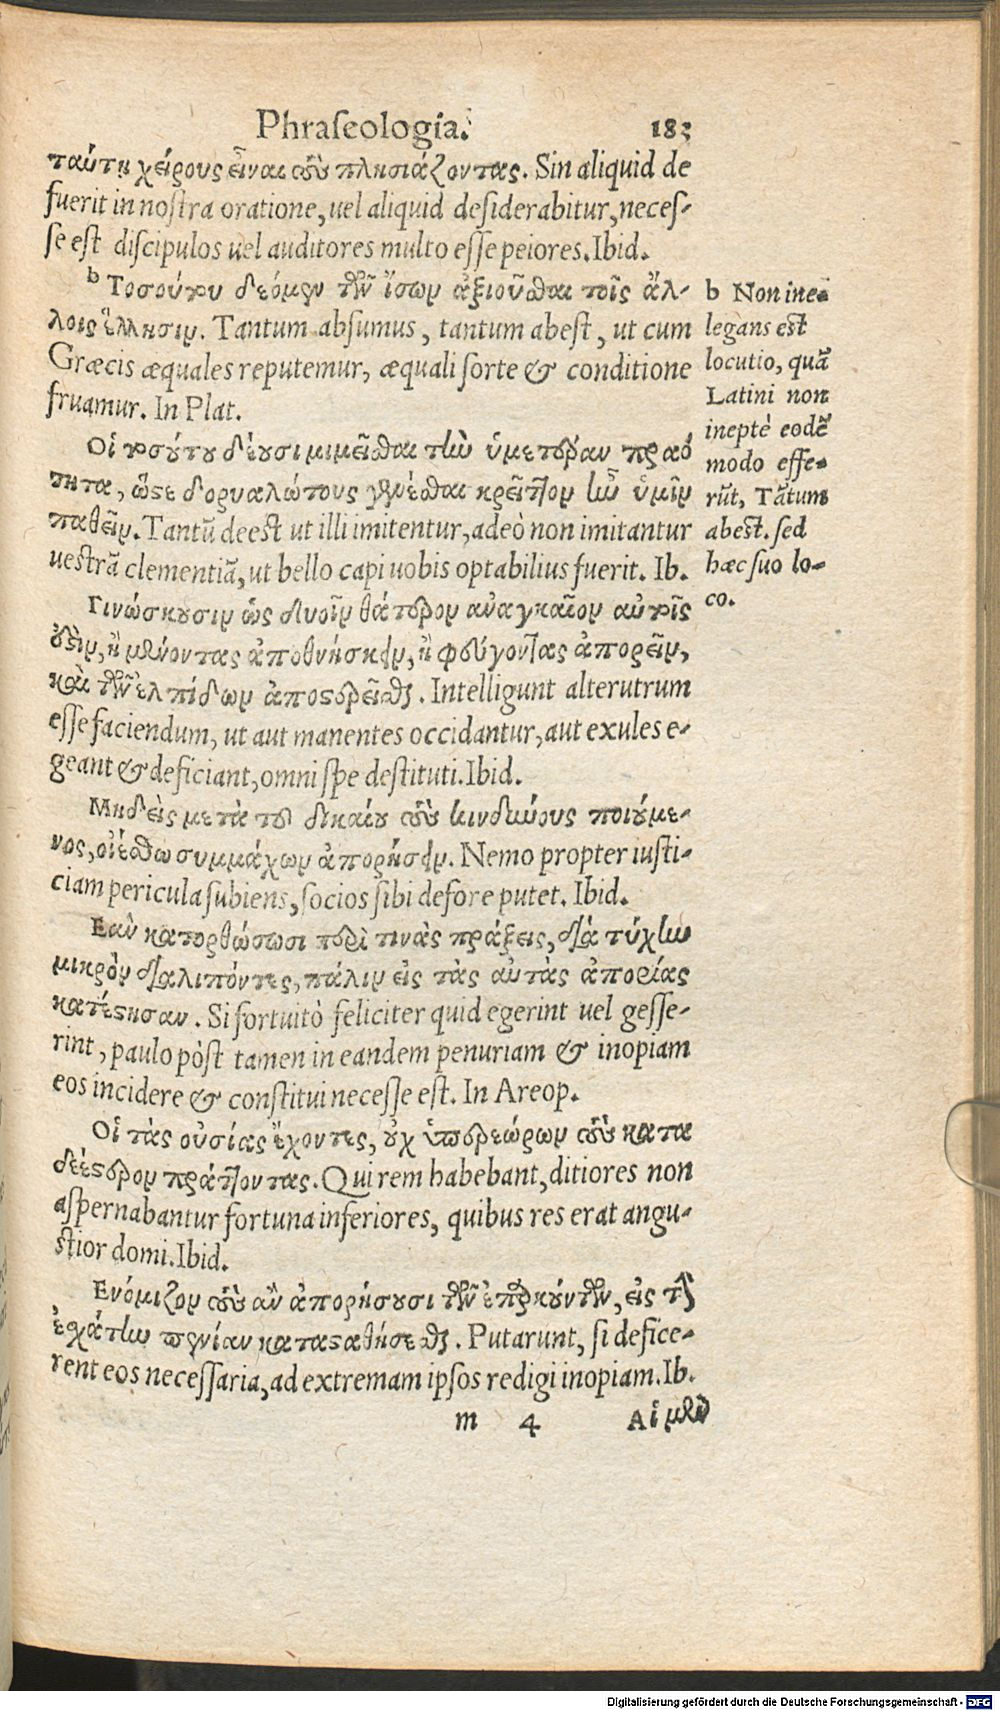 Phraſeologia. 183
ταύτῃ χείρους εἶναι τοὺς πλησιάζοντας. Sin aliquid de
fuerit in noſtra oratione, uel aliquid deſiderabitur, neceſ-
ſe eſt diſcipulos uel auditores multo eſſe peiores. Ibid.
b Τοσούτου δέομεν τῶν ἴσων ἀξιοῦσθαι τοῖς ἄλ-
λοις ἕλλησιν. Tantum abſumus, tantum abeſt, ut cum
Græcis æquales reputemur, æquali ſorte & conditione
fruamur. In Plat.
Οἱ τοσούτου δέουσι μιμεῖσθαι τὴν ὑμετέραν πραό
τητα, ὥστε δορυαλώτους γενέσθαι κρεῖττον ἦν ὑμῖν
παθεῖν. Tantū deeſt ut illi imitentur, adeò non imitantur
ueſtrā clementiā, ut bello capi uobis optabilius fuerit. Ib.
Γινώσκουσιν ὡς δυοῖν θάτερον ἀναγκαῖον αὐτοῖς
ἐστὶν, ἢ μένοντας ἀποθνήσκειν, ἢ φεύγοντας ἀπορεῖν,
καὶ τῶν ἐλπίδων ἀποστερεῖσθαι. Intelligunt alterutrum
eſſe faciendum, ut aut manentes occidantur, aut exules e-
geant & deficiant, omni ſpe deſtituti. Ibid.
Μηδεὶς μετὰ τοῦ δικαίου τοὺς κινδύνους ποιούμε-
νος, οἰέσθω συμμάχων ἀπορήσειν. Nemo propter iuſti-
ciam pericula ſubiens, ſocios ſibi defore putet. Ibid.
Εὰν κατορθώσωσι περὶ τινὰς πράξεις, διὰ τύχην
μικρὸν διαλιπόντες, πάλιν εἰς τὰς αὐτὰς ἀπορίας
κατέστησαν. Si fortuitò feliciter quid egerint uel geſſe-
rint, paulo pòſt tamen in eandem penuriam & inopiam
eos incidere & conſtitui neceſſe eſt. In Areop.
Οἱ τὰς οὐσίας ἔχοντες, οὐχ ὑπερεώρων τοὺς κατα
δεέστερον πράττοντας. Qui rem habebant, ditiores non
aſpernabantur fortuna inferiores, quibus res erat angu-
ſtior domi. Ibid.
Ενόμιζον τοὺς ἂν ἀπορήσουσι τῶν ἐπαρκούντων, εἰς τὴν
ἐσχάτην πενίαν κατασταθήσεσθαι. Putarunt, ſi defice-
rent eos neceſſaria, ad extremam ipſos redigi inopiam. Ib.
m 4 Αἱ μὲν
b Non ine-
legans eſt
locutio, quā
Latini non
ineptè eodē
modo effe-
rūt, Tātum
abeſt. ſed
hæc ſuo lo-
co.
Digitalisierung gefördert durch die Deutsche Forschungsgemeinschaft - DFG